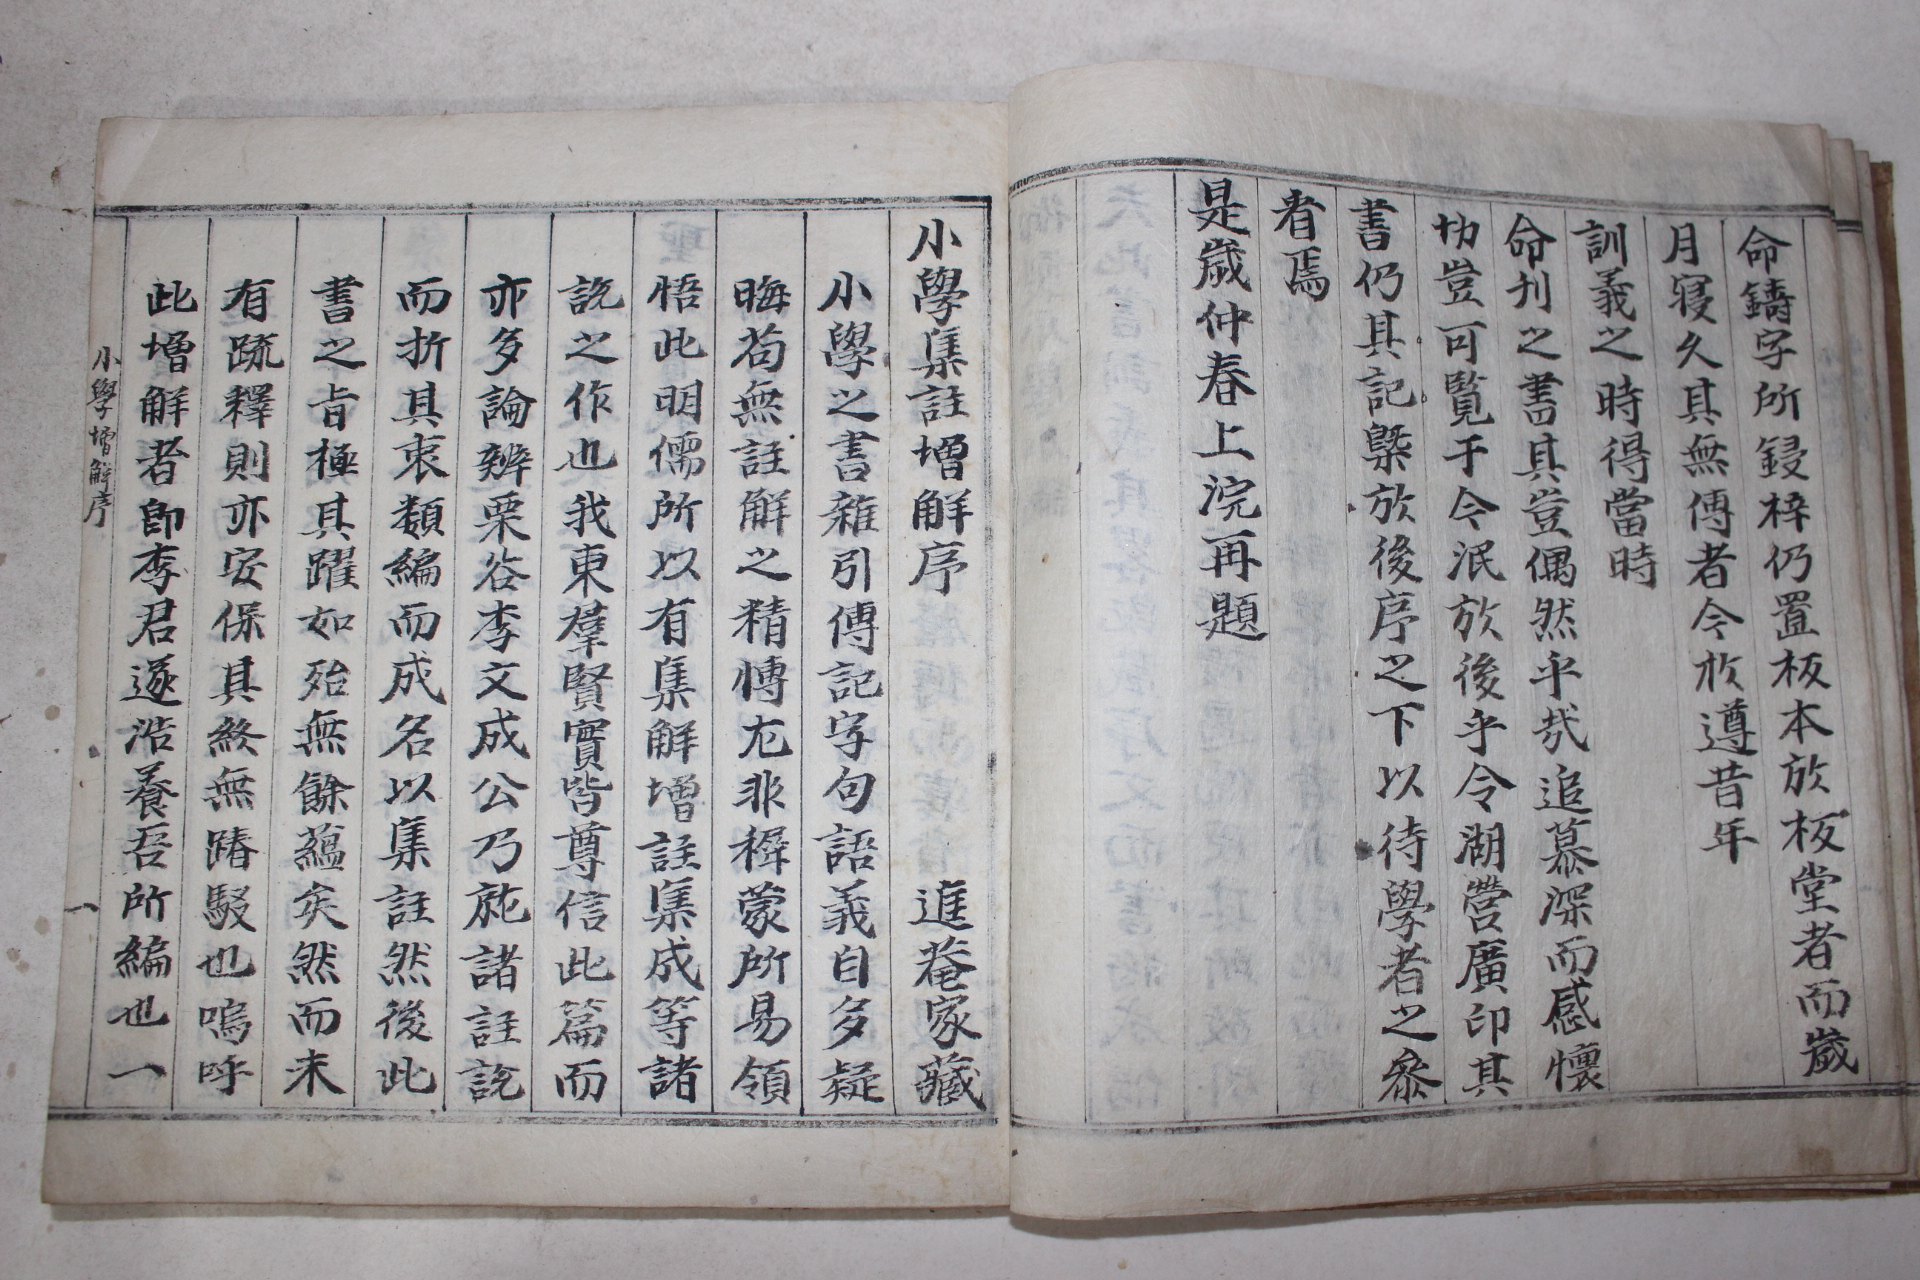 命鑄字所鋟梓仍置板本於板堂者而歲
月寖久其無傳者今於遵昔年
訓義之時得當時
命刊之書其豈偶然乎哉追慕深而感懷
切豈可覽于今泯於後乎令湖營廣印其
書仍其記槩於後序之下以待學者之叅
看焉
是歲仲春上浣再題
小學集註增解序 進菴家藏
小學之書雜引傳記字句語義自多疑
晦苟無註解之精慱尢非穉蒙所易領
悟此明儒所以有集解增註集成等諸
說之作也我東羣賢實皆尊信此篇而
亦多論辨栗谷李文成公乃就諸註說
而折其衷類編而成名以集註然後此
書之旨極其躍如殆無餘蘊矣然而未
有疏釋則亦安保其終無踳駁也嗚呼
此增解者卽李君遂浩養吾所編也一
小學增解序 一